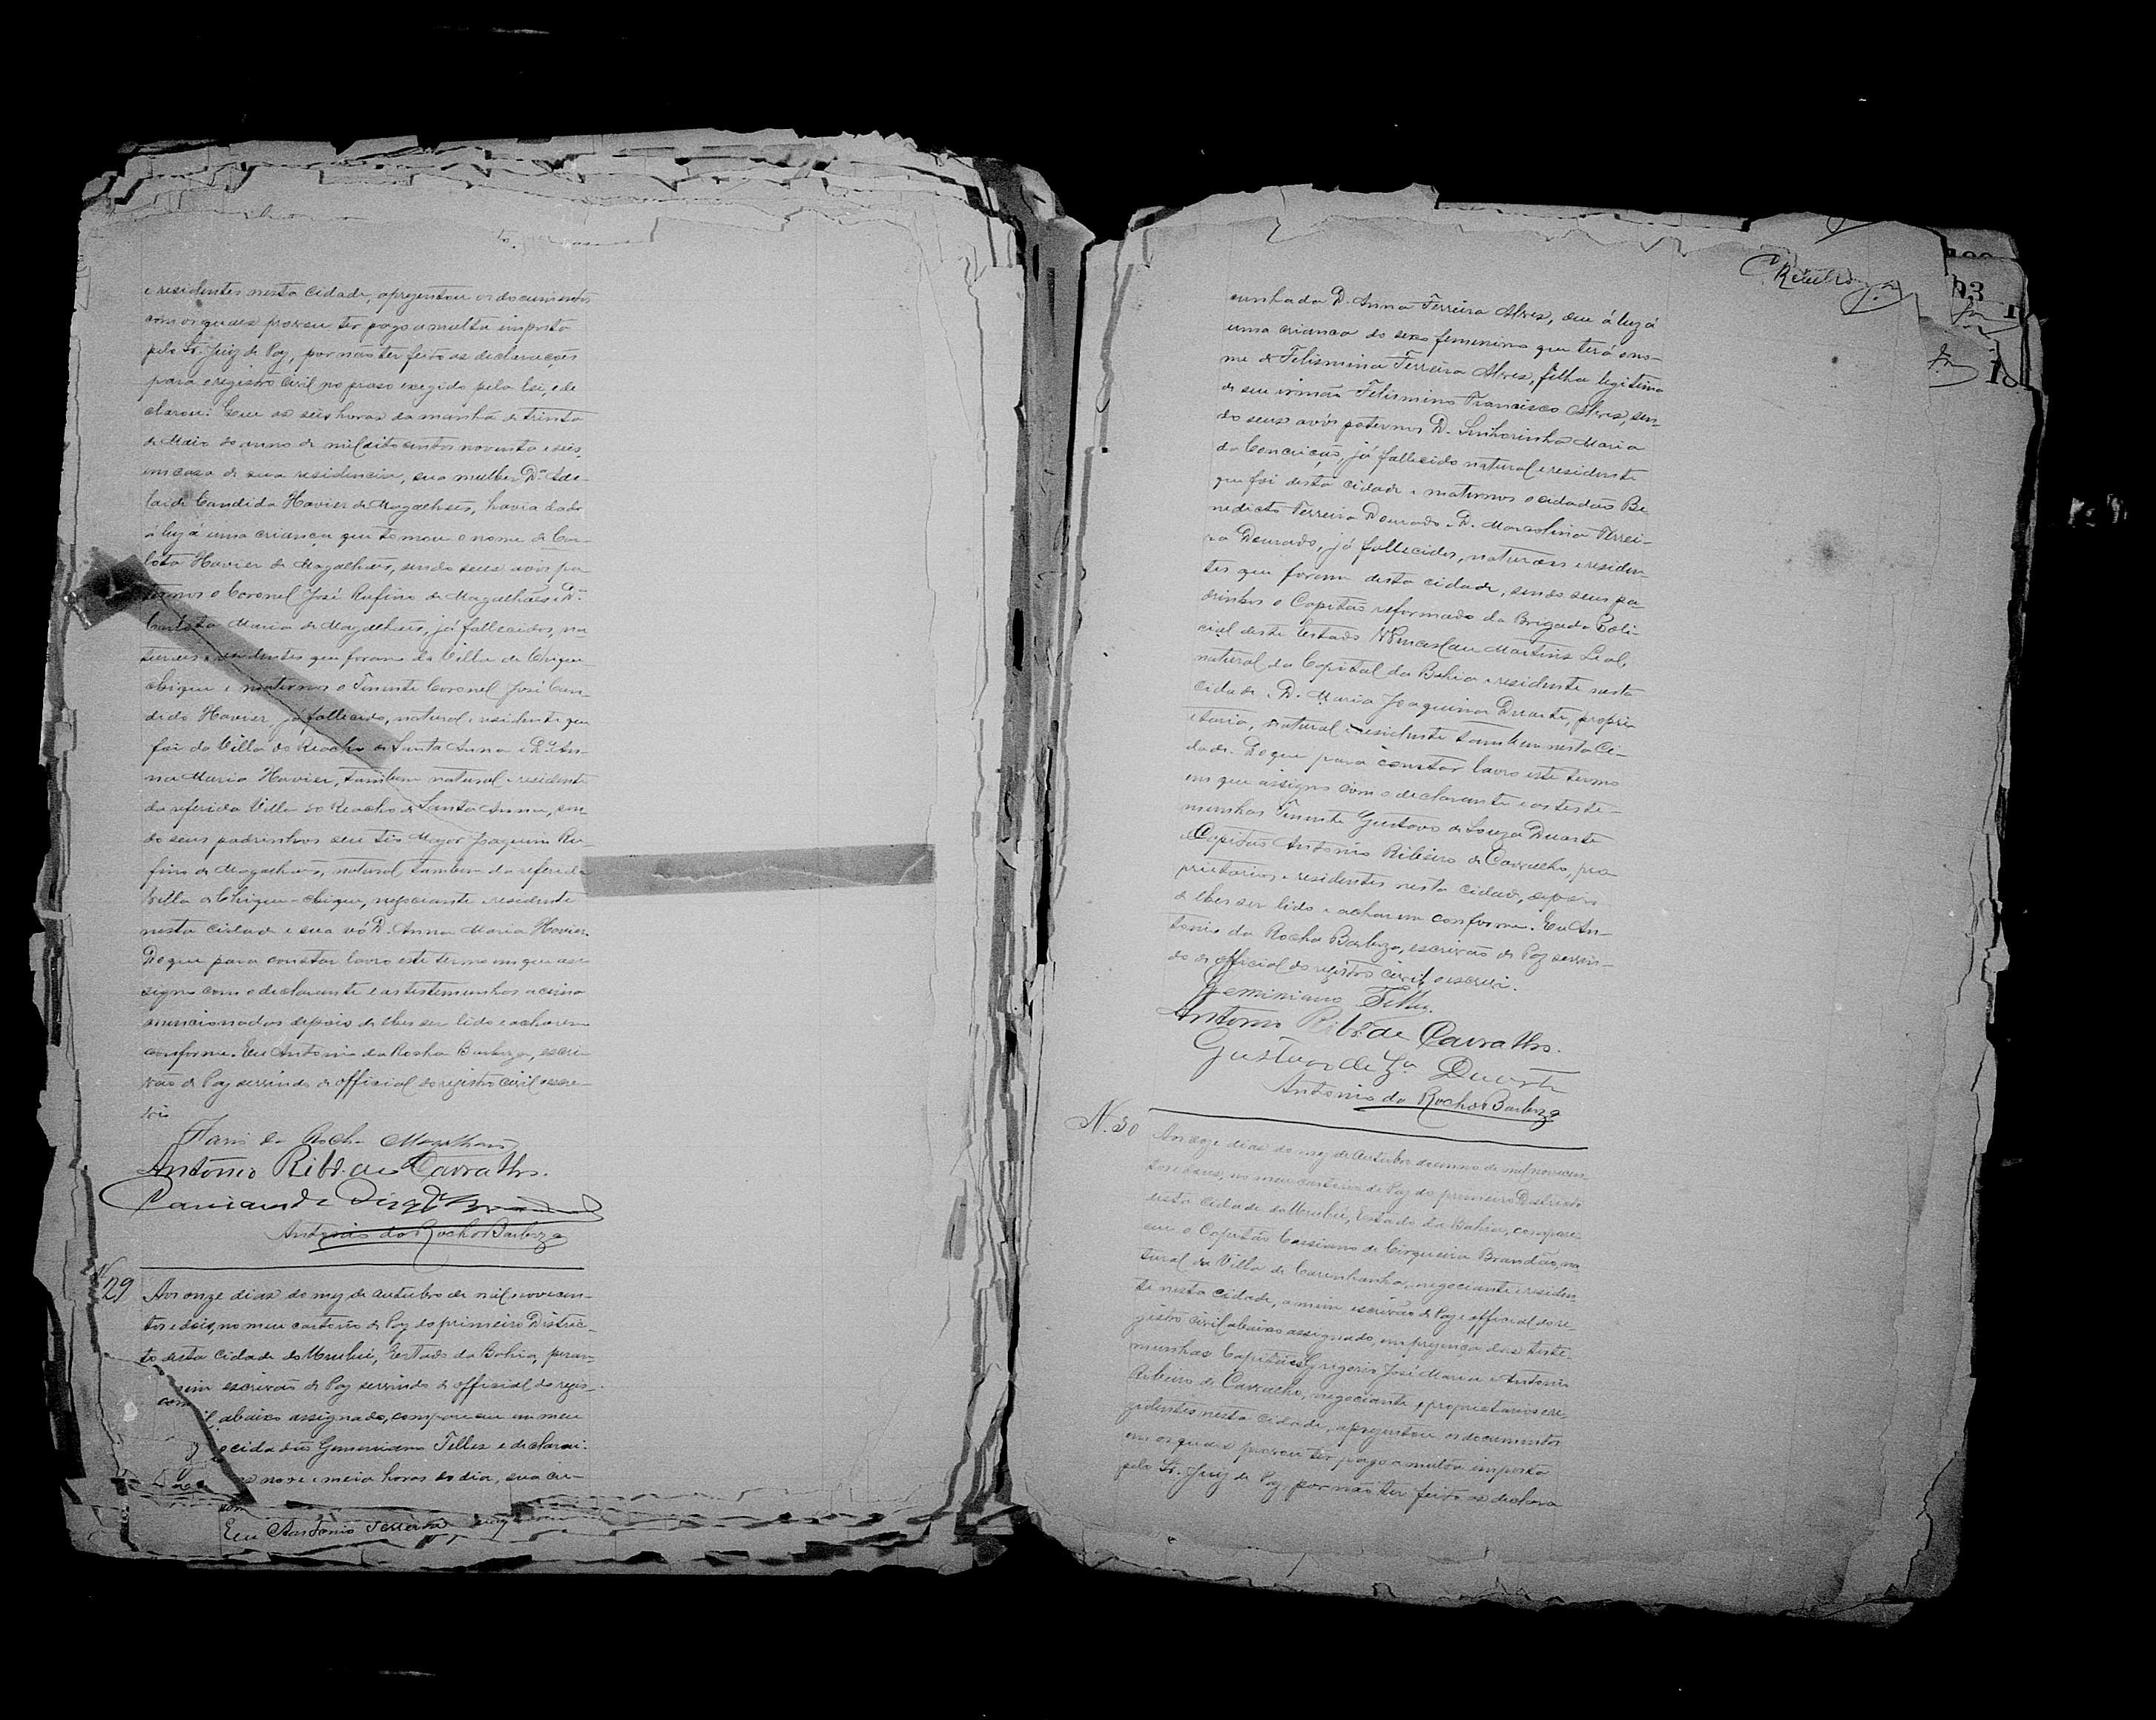 e residentes nesta cidade, apresentou os documentos
com os quaes provou ter pago a multa imposta
pelo Sr. Juiz de Paz, por não ter feito as declarações
para o registro civil no praso exegido pela lei, e de
clarou: Que as seis horas da manhã de trinta
de Maio do anno de mil oito centos noventa e seis,
em casa de sua residencia, sua mulher D.ª Ade-
laide Candida Xavier de Magalhães, havia dado
á luz á uma criança que tomou o nome de Car-
lota Xavier de Magalhães, sendo seus avós pa-
ternos o Coronel José Rufino de Magalhães e D.ª
Carlota Maria de Magalhães, já fallecidos, na
turaes e residentes que foram da Villa de Chique
chique e maternos o Tenente Coronel José Can-
dido Xavier, já fallecido, natural e residente que
foi da Villa do Riacho de Santa Anna e D.ª An-
na Maria Xavier, tambem natural e residente
da referida Villa do Riacho de Santa Anna, sen-
do seus padrinhos seu tio Major Joaquim Ru-
fino de Magalhães, natural tambem da referida
Villa de Chique-chique, negociante e residente
nesta cidade e sua vó D. Anna Maria Xavier.
Do que para constar lavro este termo em que as-
signo com o declarante e as testemunhas acima
mencionadas depois de lhes ser lido e acharem
conforme. Eu Antonio da Rocha Barboza, escri-
vão de Paz servindo de official do registro civil o escre-
vi.
da Rocha Magalhães
Antonio Ribr.º de Carvalho.
Antonio da Rocha Barboza
N. 29
Aos onze dias do mez de Outubro de mil novecen-
tos e dois, no meu cartorio de Paz do primeiro Distric-
to desta cidade do Urubú, Estado da Bahia, peran-
mim escrivão de Paz servindo de official do regis-
abaixo assignado, compareceu em meu
cidadão Geminiano Telles e declarou:
nove e meia horas do dia, sua cu-
Eu Antonio Ferreira
Ribeiro
93
cunhada D. Anna Ferreira Alves, deu á luz á
uma criança do sexo femenino que terá o no-
me de Felismina Ferreira Alves, filha legitima
de seu irmão Felismino Francisco Alves, sen-
do seus avós paternos D. Senhorinha Maria
da Conceição, já fallecida natural e residente
que foi desta cidade e maternos o cidadão Be
nedicto Ferreira Dourado e D. Marcolina Ferrei-
ra Dourado, já fallecidos, naturaes e residen-
tes que foram desta cidade, sendo seus pa-
drinhos o Capitão reformado da Brigada Poli-
cial deste Estado Wencesláu Martins Leal,
natural da Capital da Bahia e residente nesta
cidade e D. Maria Joaquina Duarte, propri
etaria, natural e residente tambem nesta Ci-
dade. Do que para constar lavro este termo
em que assigno com o declarante e as teste-
munhas Tenente Gustavo de Souza Duarte
e Capitão Antonio Ribeiro de Carvalho, pro
prietarios e residentes nesta cidade, depois
de lhes ser lido e acharem conforme. Eu An-
tonio da Rocha Barboza, escrivão de Paz servin-
do de official do registro civil o escrevi.
Geminiano Telles.
Antonio Ribr.º de Carvalho.
Gustavo de Sz.ª Duarte
Antonio da Rocha Barboza
N. 30
Aos onze dias do mez de Outubro do anno de mil novecen-
tos e dois, no meu cartorio de Paz do primeiro Districto
desta cidade do Urubú, Estado da Bahia, compare-
ceu o Capitão Cassiano de Cirqueira Brandão, na
tural da Villa de Carinhanha, negociante e residen-
te nesta cidade, a mim escrivão de Paz e official do re-
gistro civil abaixo assignado, em presença das teste-
munhas Capitães Gregorio José Maria e Antonio
Ribeiro de Carvalho, negociante e proprietarios e re-
zidentes nesta cidade, apresentou os documentos
em os quaes provou ter pago a multa imposta
pelo Sr. Juiz de Paz, por não ter feito as declara